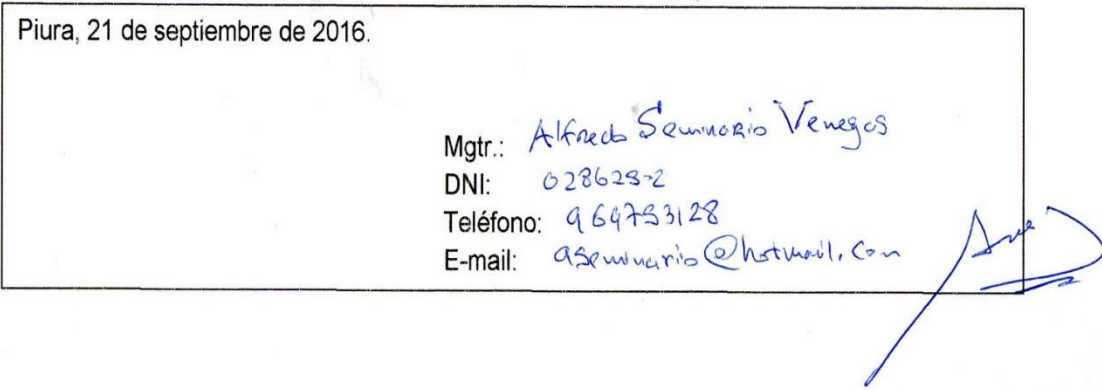 Piura, 21 de septiembre de 2016.
Mgtr.: Alfredo Seminario Venegas
DNI:
Teléfono: 969753128
E-mail: aseminario@hotmail.com